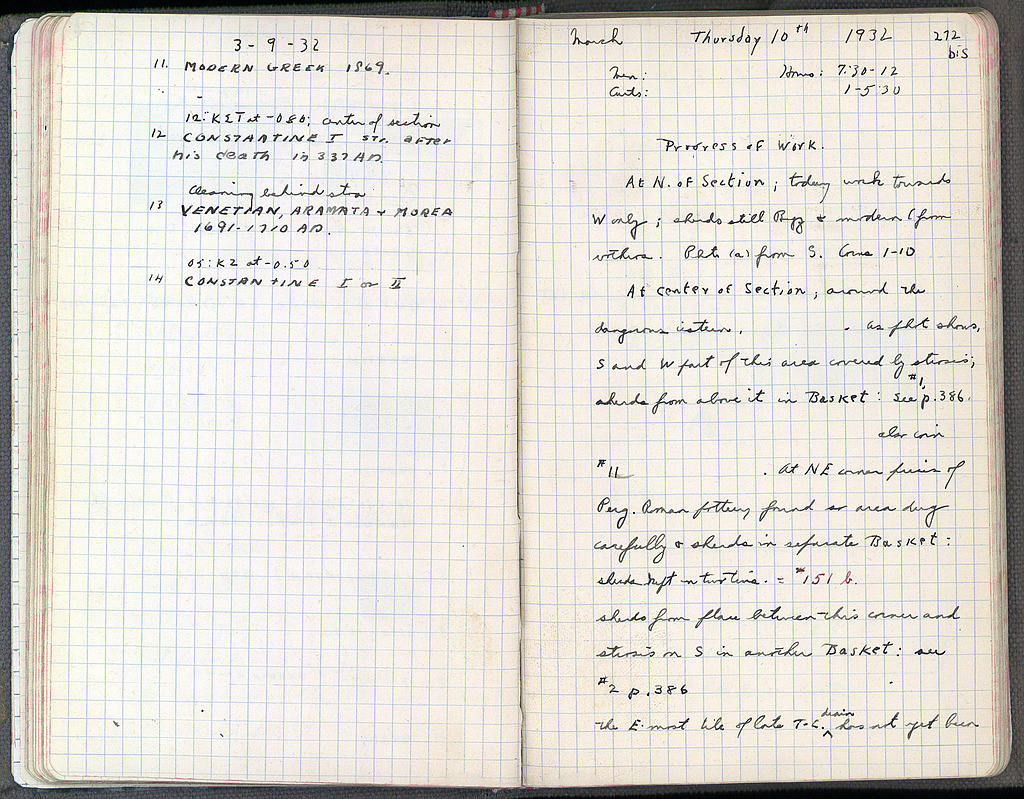 3-9-32
11. MODERN GREEK 1869.
12: KΣT at -0.80; center of section
12 CONSTANTINE I str. after
his death in 337 AD.
Cleaning behind stoa
13 VENETIAN, ARAMATA & MOREA
1691-1710 AD.
05: KZ at -0.50
14 CONSTANTINE I or II
March Thursday 10th 1932 272
bis
Men: Hours: 7:30-12
Carts: 1-5:30
Progress of Work.
At N. of Section; today work towards
W only; sherds still Byz & modern (from
from S. Coins 1-10
At center of Section, around the
dangerous cistern. . As phot shows,
S and W part of this area covered by stosis;
#1,
sherds from above it in Basket: see p.386.
also coin
#11 . At NE corner pieces of
Perg. Roman pottery found so area dug
carefully & sherds in separate Basket:
sherds kept in two tins. = #151 b.
sherds from place between this corner and
stosis on S in another Basket: see
#2 p.386
drain
The E-most tile of late T-C. ^ has not yet been